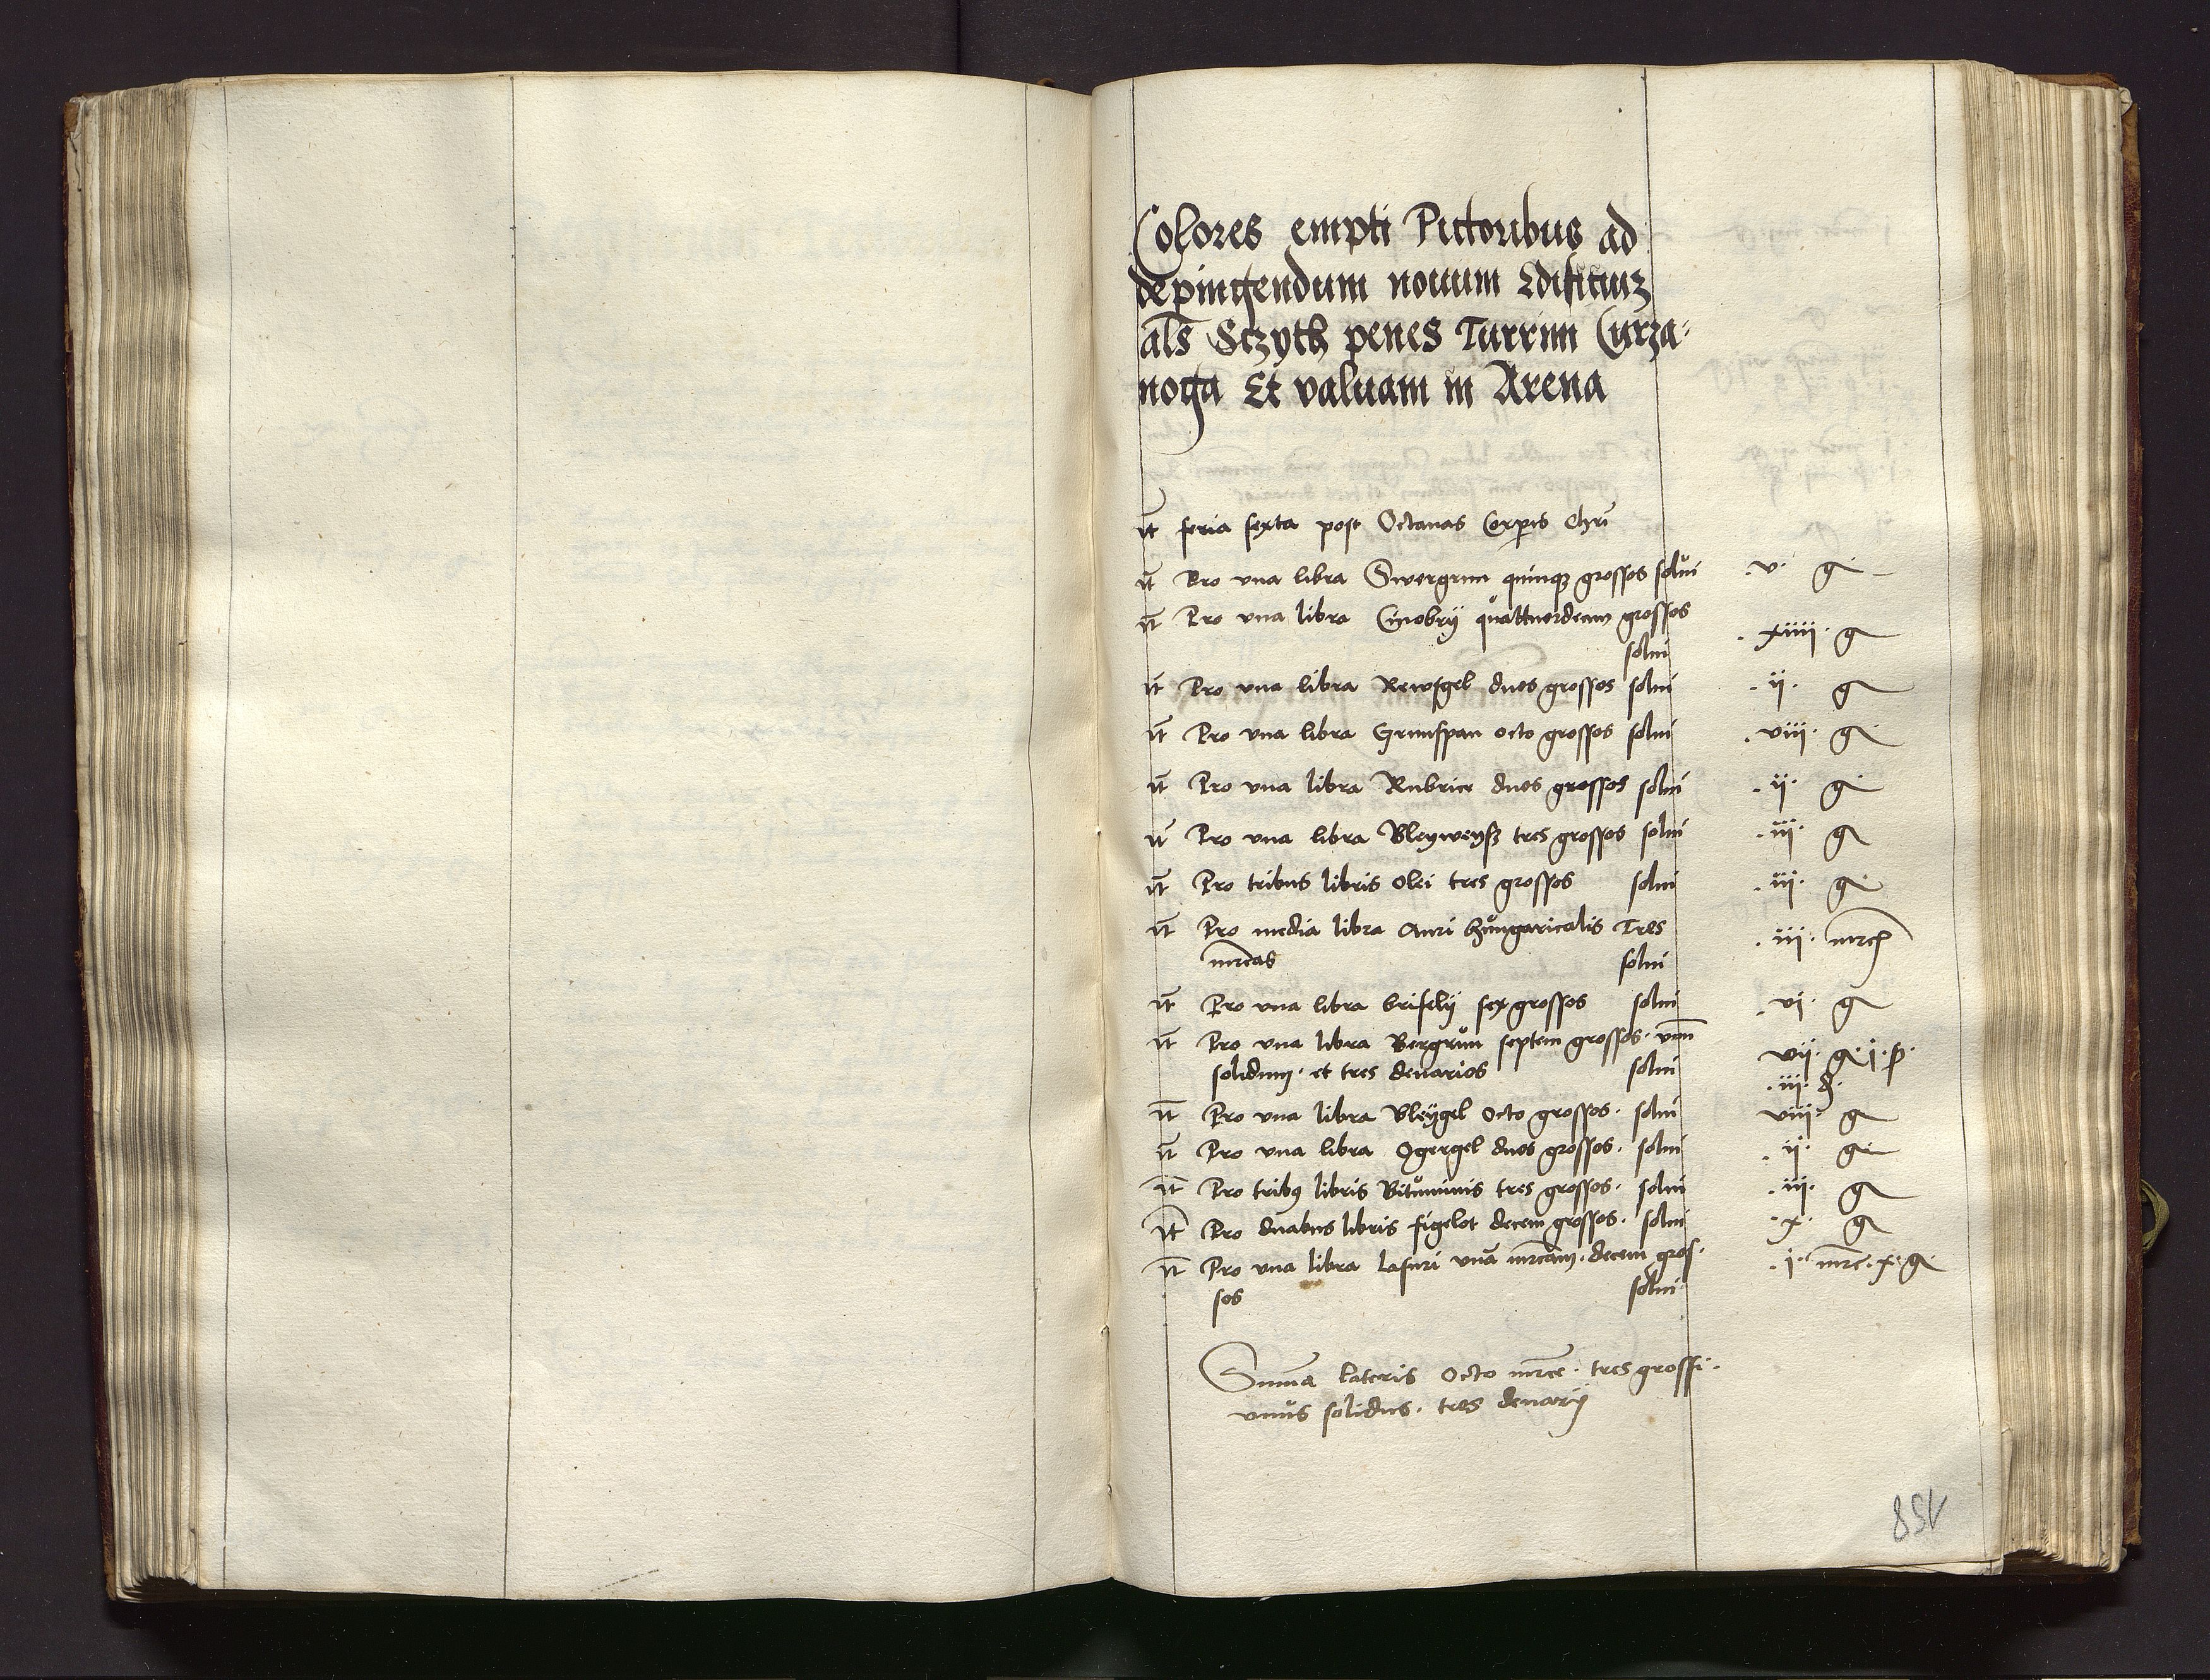 Colores empti Pictoribus ad
depingendum nouum Edificiuz
als Sczyth penes Turrim Curza-
noga Et valuam in Arena
It feria sexta post Octauas Corpis Chri
It Pro vna libra Swergrun quinqz grossos solui .v. g
It Pro vna libra Cinobrij quattuordecim grossos
solui .xiiii. g
It Pro vna libra Rewsgel duos grossos solui .ij. g
It Pro vna libra Grunspan octo grossos solui .viij. g
It Pro vna libra Rubrice duos grossos solui .ij. g
It Pro vna libra Bleyweysz tres grossos solui .iij. g
It Pro tribus libris olei tres grossos solui .iij. g
It Pro media libra Auri hungaricalis Tres
mrcas solui .iij. mrc
It Pro vna libra briselij sex grossos solui .vj. g
It Pro vna libra Bergrun septem grossos. vnu
solidum. et tres denarios solui vij. g. j. s.
.iij. d.
It Pro vna libra Bleygel Octo grossos. solui viij. g
It Pro vna libra Ogergel duos grossos. solui .ij. g
It Pro tribus libris Bituminis tres grossos. solui .iij. g
It Pro duabus libris figelot decem grossos. solui .x. g
It Pro vna libra Lasuri vna mrcam. decem gros-
sos solui .j. mrc. x. g.
Summa lateris Octo mrce. tres grossi.
vnus solidus. tres denarij
158